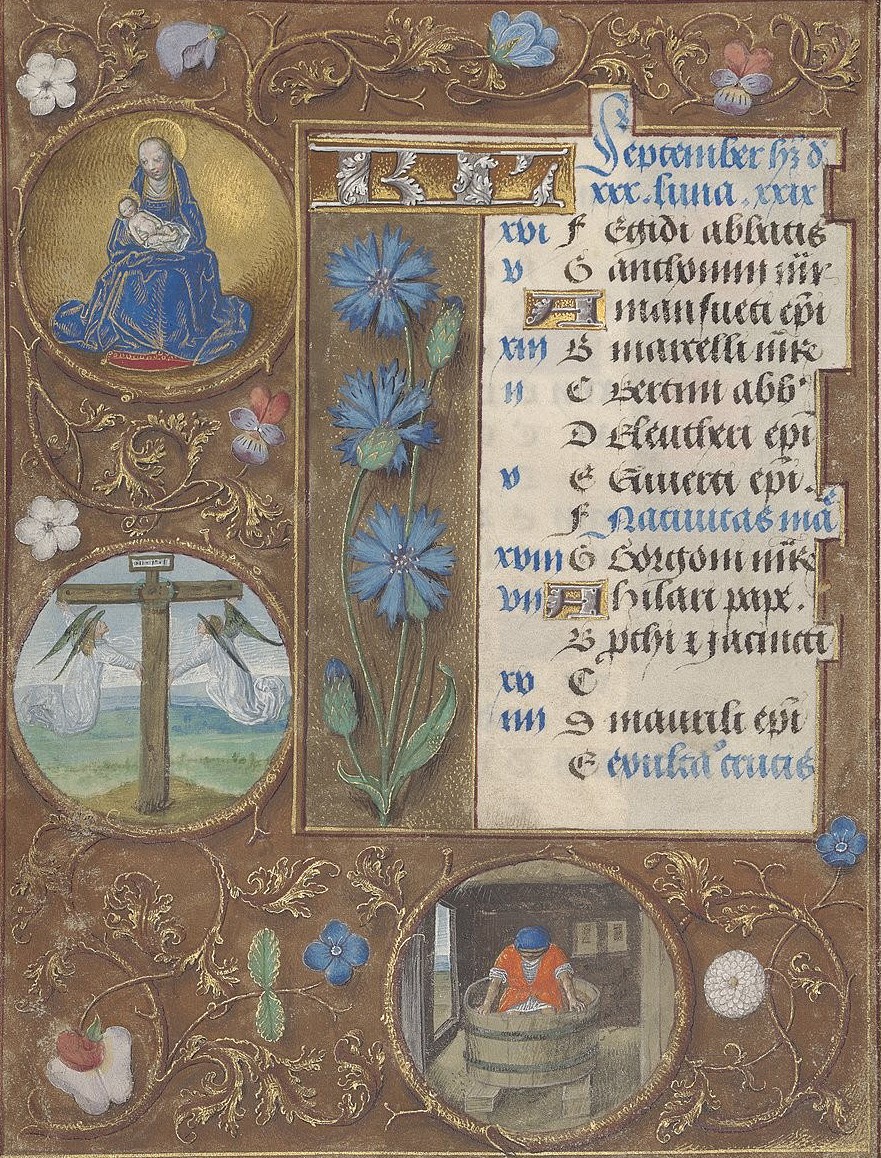 KL
September hz d.
xxx. luna. xxix
xvi F Egidi abbatis
v G anthonini mr̃
A mansueti epĩ
xiii B marcelli mr̃is
ii C Bertini abb'
D Eleutheri epĩ
v E Evuerti epĩ.
F Natiuitas ma
xviii G Gorgoni mr̃is
vii A hilari pape.
B pthi ⁊ jacincti
xv C
iiii D maurili epĩ
E exalta° crucis